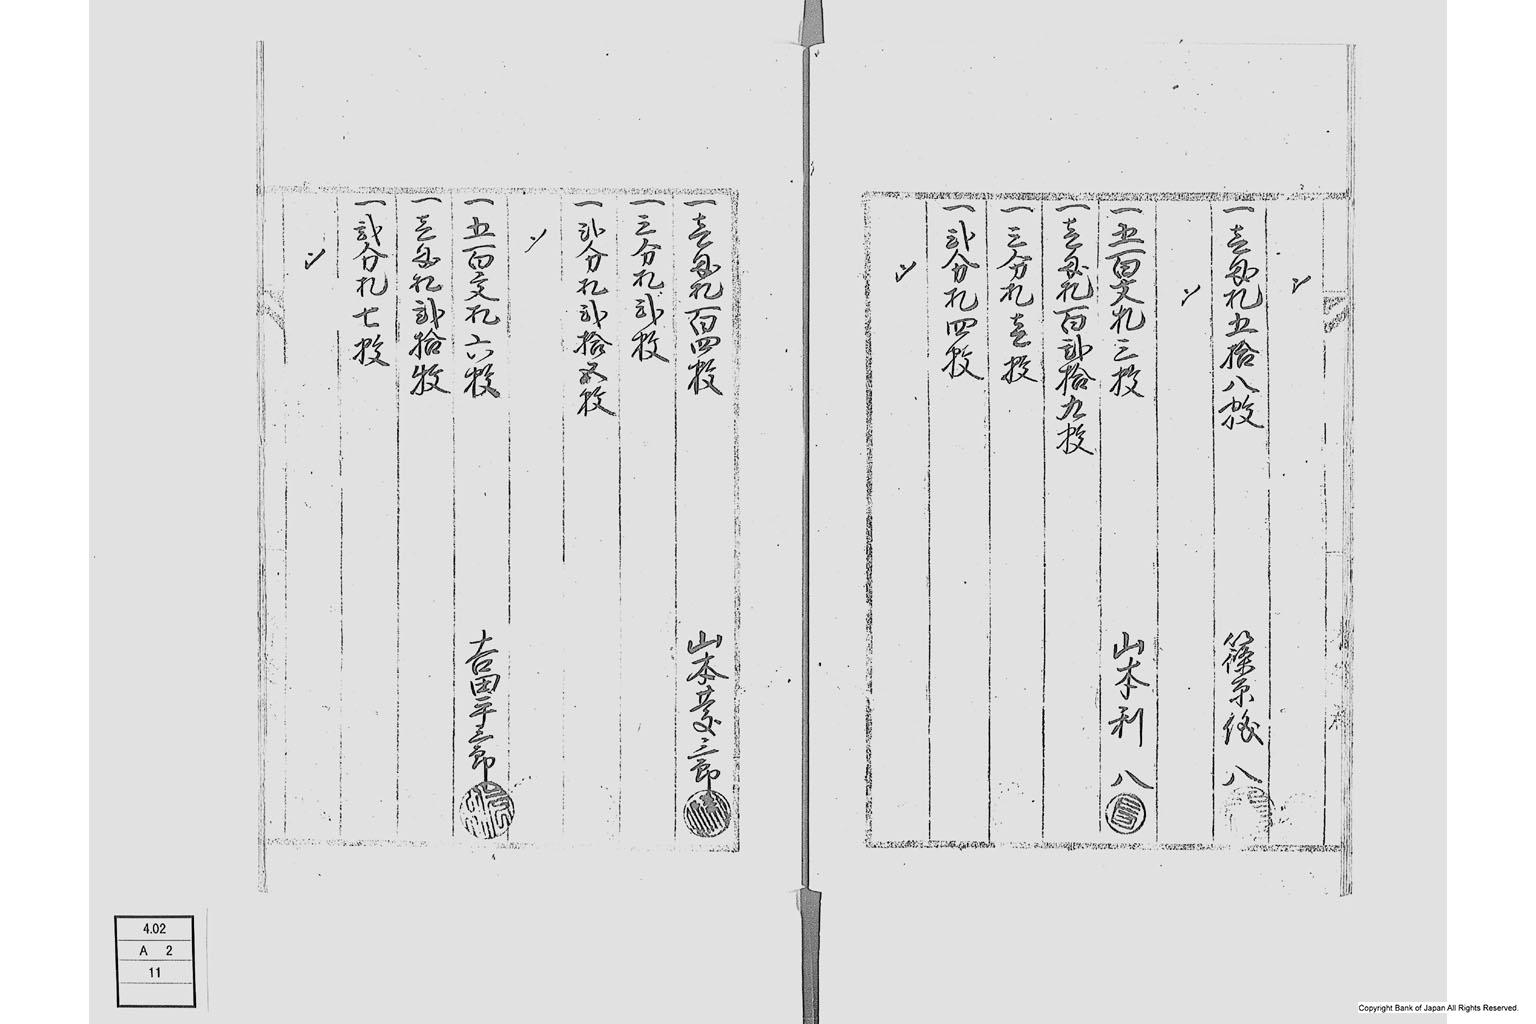 一壱匁札五拾八枚
篠原後八
一五百文札三枚
山本利八
一壱匁札百弐拾九枚
一三分札壱枚
一弐分札四枚
一壱匁札百四枚
山本芳三郎
一三分札弐枚
一弐分札弐拾五枚
一五百文札六枚
吉田平三郎
一壱匁札弐拾枚
一弐分札七枚
4.02
A 2
11
Copyright Bank of Japan All Rights Reserved.